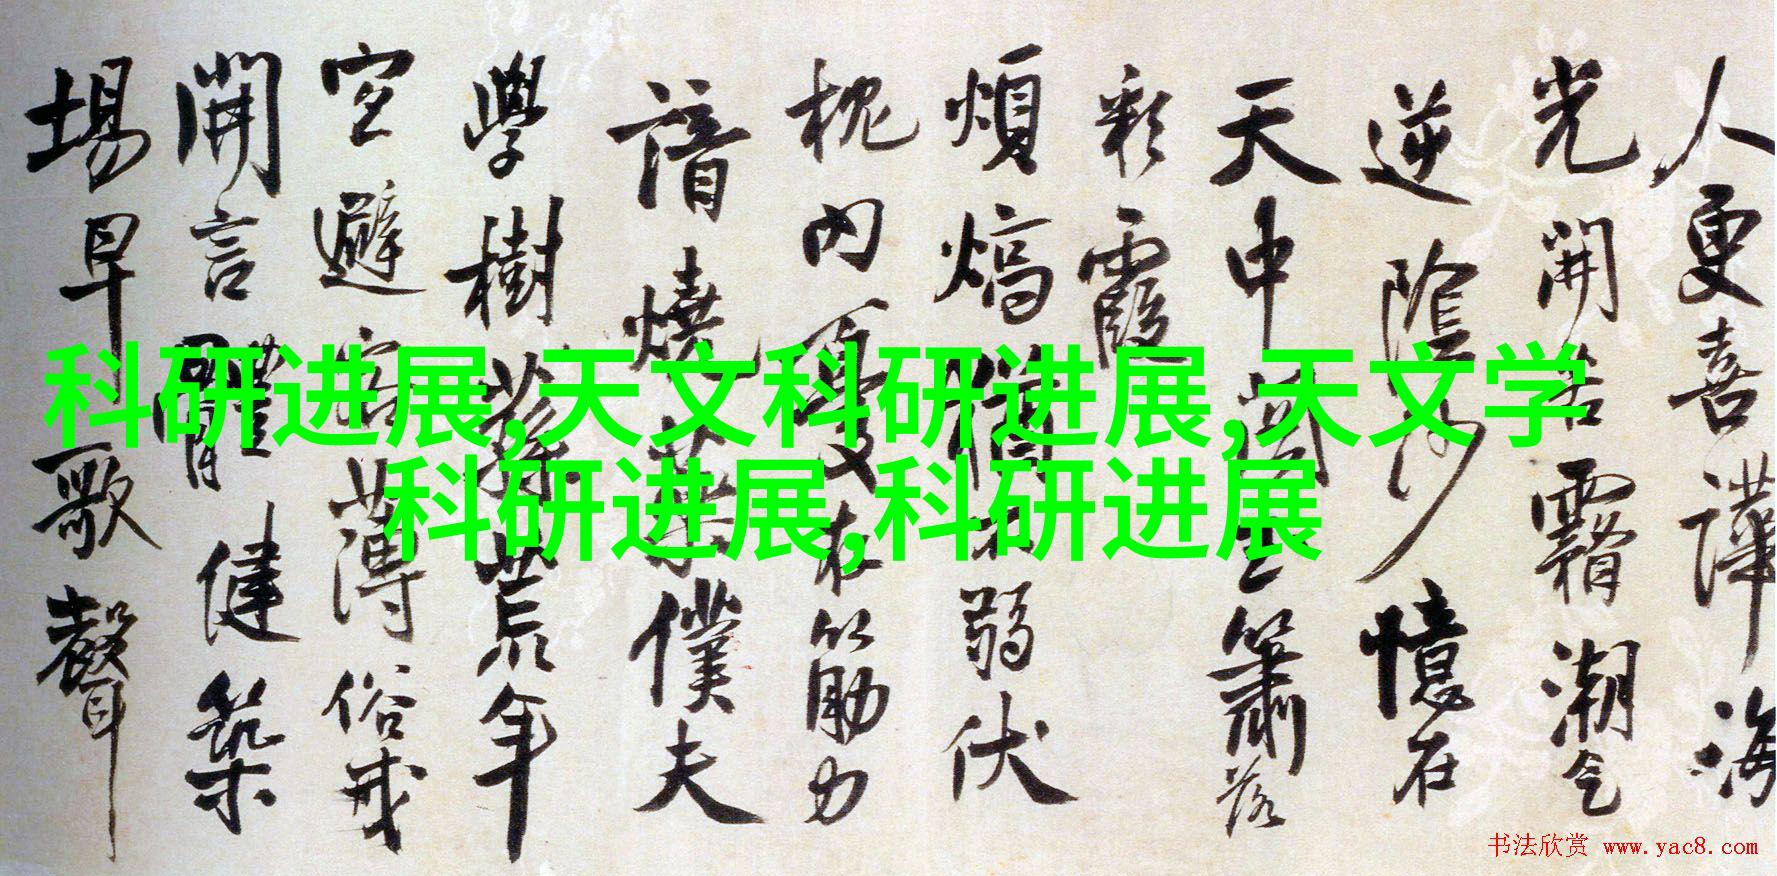 科研进展,天文科研进展,天文学
科研进展,科研进展
人更喜譁海
光開霜潮
逆陰沙憶在
天中簫落
彩霞
煩熇弱伏
枕内筋力
諳燒藥僕夫
學樹荒年
空避客薄俗
開言體健築
場早歌聲
书法欣赏 www.yac8.com